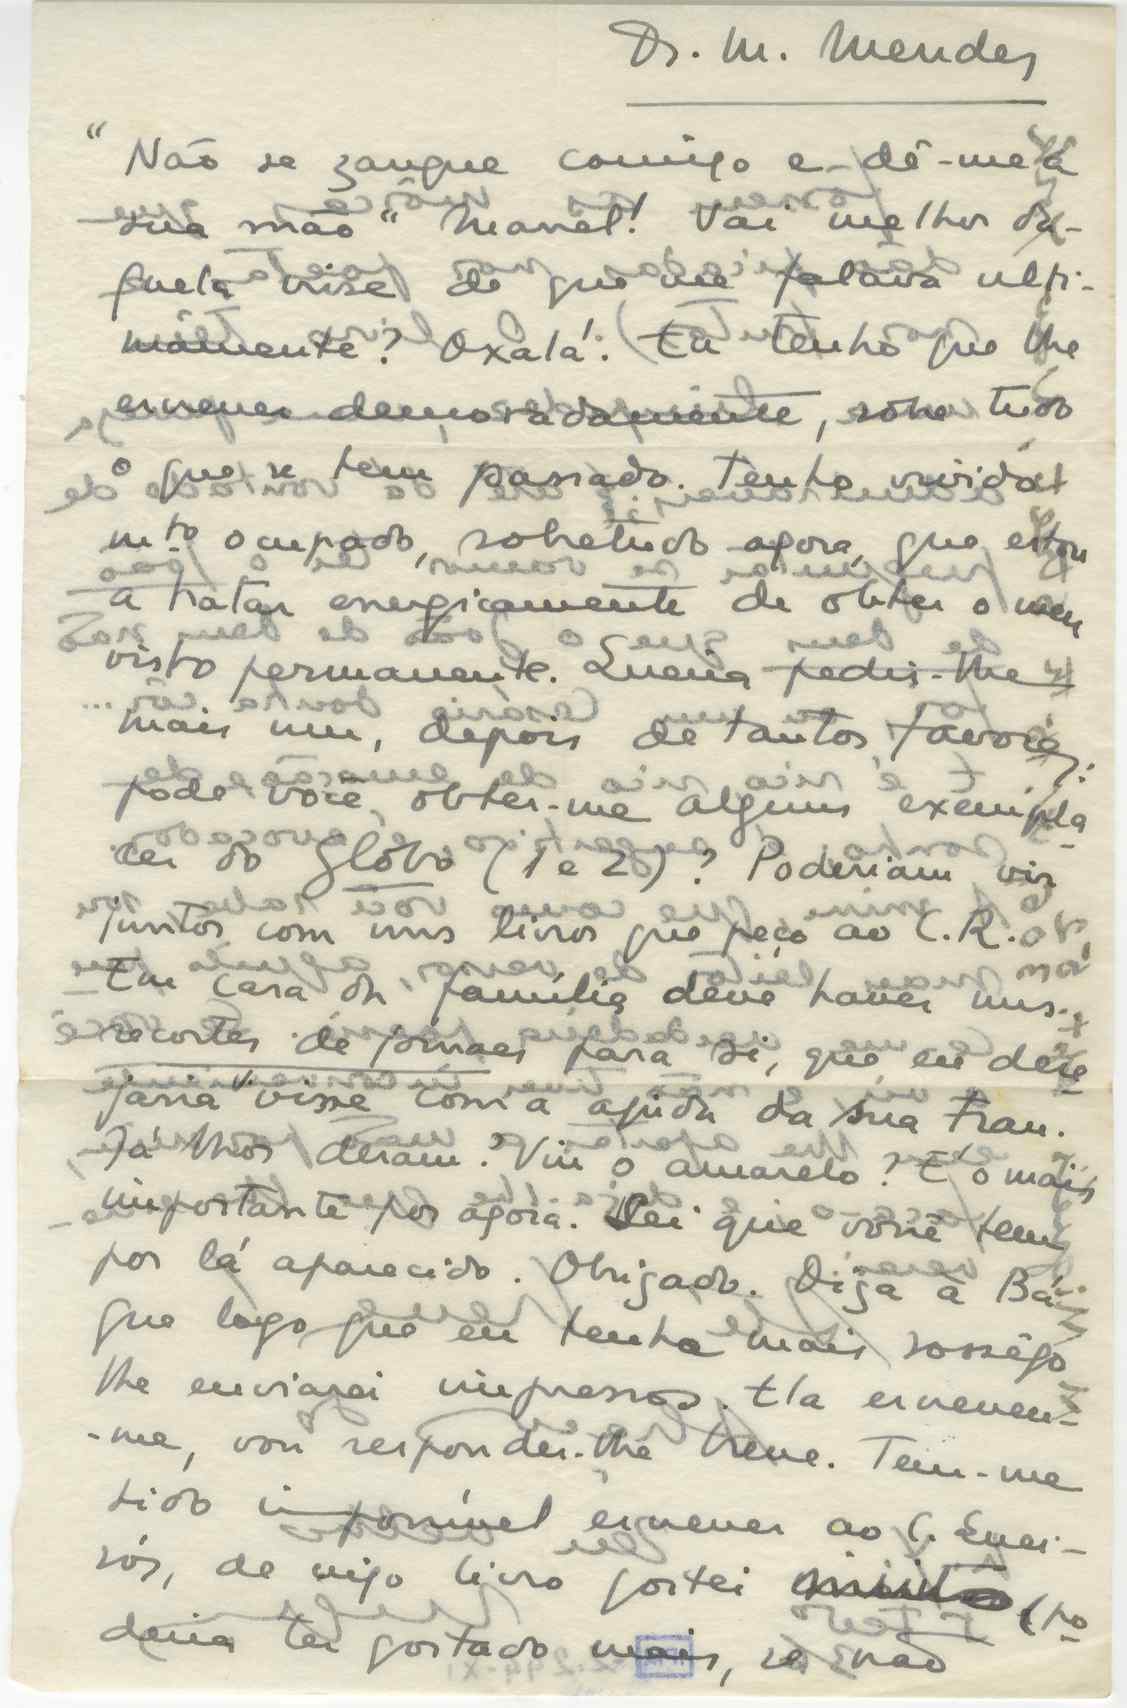 Dr. M. Mendes
"Não se zangue comigo e dê-me a
sua mão" Manel! Vai melhor da-
quela crise de que me falava ulti-
mamente? Oxalá! Eu tenho que lhe
escrever demoradamente, sobre tudo
o que se tem passado. Tenho vivido
mto ocupado, sobretudo agora, que estou
a tratar energicamente de obter o meu
visto permanente. Queria pedir-lhe
mais um, depois de tantos favores:
pode você obter-me alguns exempla-
res do Glôbo (1 e 2)? Poderiam vir
juntos com uns livros que peço ao C.R.
Em casa da família deve haver uns
recortes de jornaes para si, que eu dese-
jaria visse com a ajuda da sua Frau.
Já lhos deram? Viu o amarelo? E' o mais
importante por agora. Sei que você tem
por lá aparecido. Obrigado. Diga à Bá
que logo que eu tenha mais sossêgo
lhe enviarei impressos. Ela escreveu-
-me, vou responder-lhe breve. Tem-me
sido impossível escrever ao C. Quei-
rós, de cujo livro gostei muito (po-
deria ter gostado mais, se não